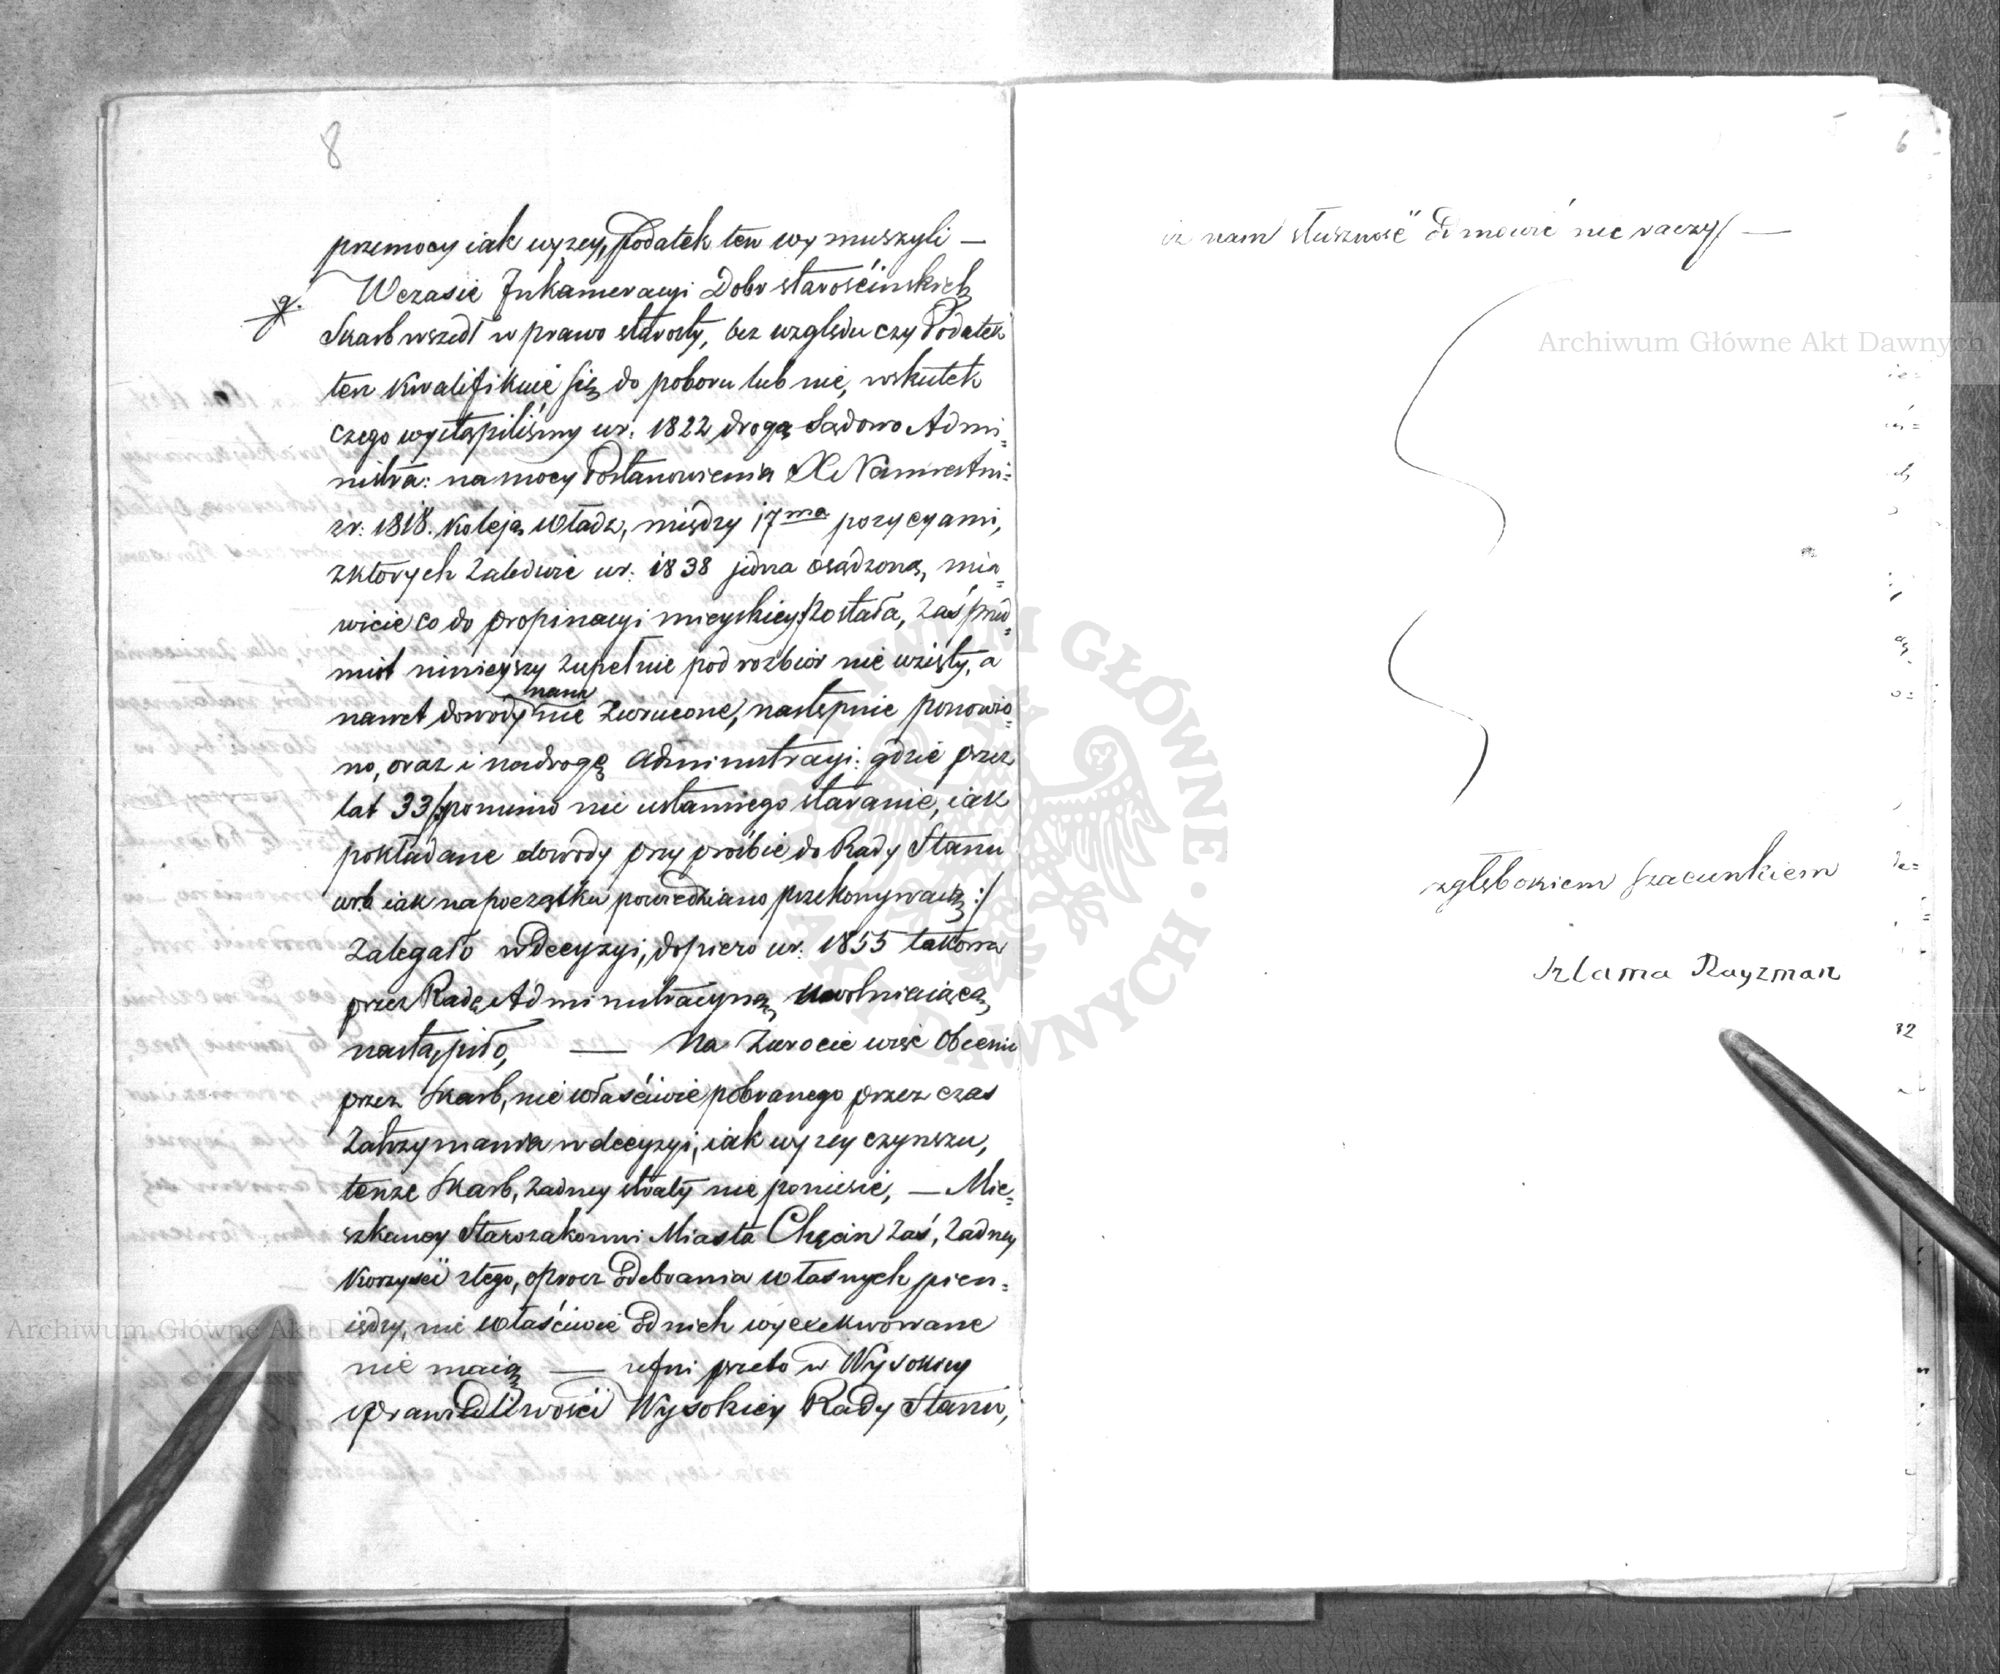 8
przemocy iak wyzey, Podatek ten wymuszyli —
g. Wczasie Inkameracyi Dobr starościnskich
Skarb wszedł w prawo starosty, bez względu czy Podatek
ten kwalifikuie się do poboru lub nie, wskutek
czego wystąpiliśmy wr. 1822 drogą Sądowo Admi=
nistra: na mocy Postanowienia X Namiestni=
zr. 1818. koleją władz, między 17ma pozycyami,
zktórych zaledwie wr. 1838 jedna osądzoną, mia=
wicie co do propinacyi mieyskiey została, zaś przed=
miot ninieyszy zupełnie pod rozbiór nie wzięty, a
nawet dowody nam nie zwrucone, następnie ponowio=
no, oraz i nadrogę Administracyi: gdzie przez
lat 33 /:pomimo nie ustannego staranie, iak
pokładane dowody przy prośbie do Rady Stanu
wrb iak napoczątku powiedziano przekonywaią :/
zalegało wdecyzyi, dopiero wr. 1855 takowa
przez Radę Administracyiną uwolniaiącą,
nastąpiło, — Na zwrocie więc obecnie
przez Skarb, nie właściwie pobranego przez czas
zatrzymania wdecyzyi, iak wyzey czynszu,
tenze Skarb, zadney straty nie poniesie, — Mie=
szkancy Starozakonni Miasta Chęcin zaś, zadney
korzyści ztego, oprocz odebrania własnych pien=
iędzy, nie właściwie od nich wyexekwowane
nie maią — ufni przeto w Wysokiey
sprawiedliwości Wysokiey Rady Stanu,
6
iż nam słuszność odmowić nie raczy —
zgłębokiem szacunkiem
Szlama Rayzman
Archiwum Główne Akt Dawnych
Archiwum Główne Akt Dawnych
ARCHIWUM GŁÓWNE AKT DAWNYCH